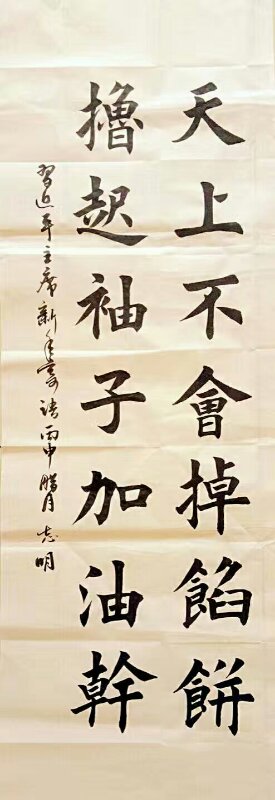 天上不會掉餡餅
擼起袖子加油幹
習近平主席新年寄語 丙申腊月 志明